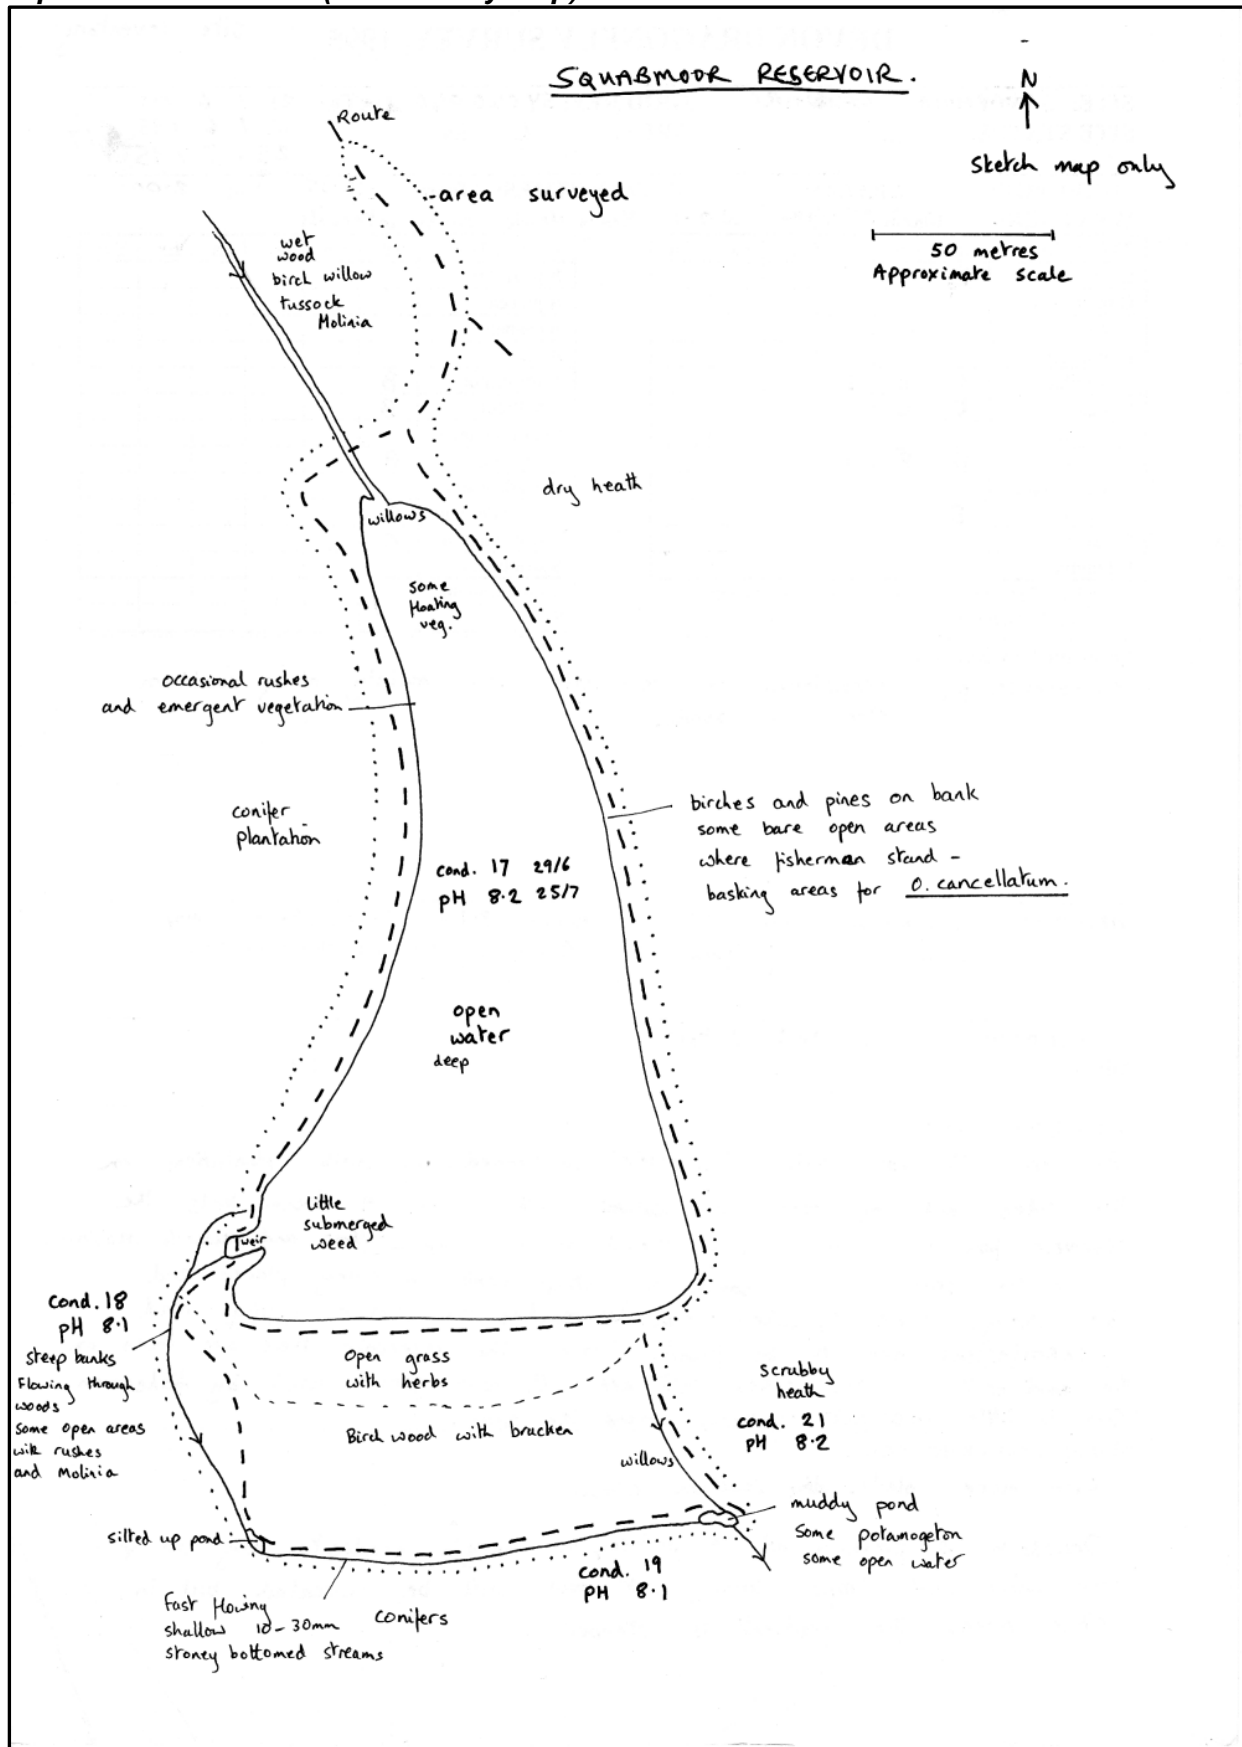 SQUABMOOR RESERVOIR.
N
Sketch map only
50 metres
Approximate scale
Route
area surveyed
wet
wood
birch willow
tussock
Molinia
dry heath
willows
some
floating
veg.
occasional rushes
and emergent vegetation
conifer
plantation
birches and pines on bank
some bare open areas
where fisherman stand -
basking areas for O. cancellatum.
cond. 17 29/6
pH 8.2 25/7
open
water
deep
little
submerged
weed
weir
cond. 18
pH 8.1
steep banks
Flowing through
woods
some open areas
with rushes
and Molinia
Open grass
with herbs
Birch wood with bracken
scrubby
heath
cond. 21
pH 8.2
willows
muddy pond
some potamogeton
some open water
silted up pond
cond. 19
pH 8.1
Fast flowing
shallow 10-30mm
stoney bottomed streams
conifers